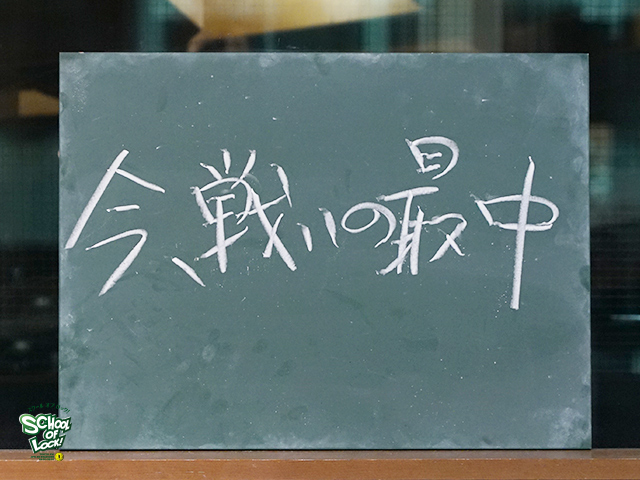 今、戦いの最中
SCHOOL
OF
LOCK!